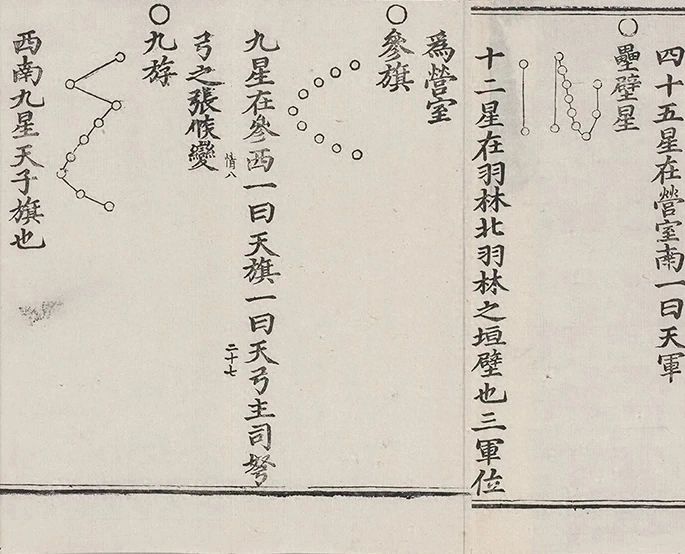 四十五星在營室南一曰天軍
壘壁星
十二星在羽林北羽林之垣壁也三軍位
爲營室
參旗
九星在參西一曰天旗一曰天弓主司弩
弓之張候變
情八
二十七
九斿
西南九星天子旗也